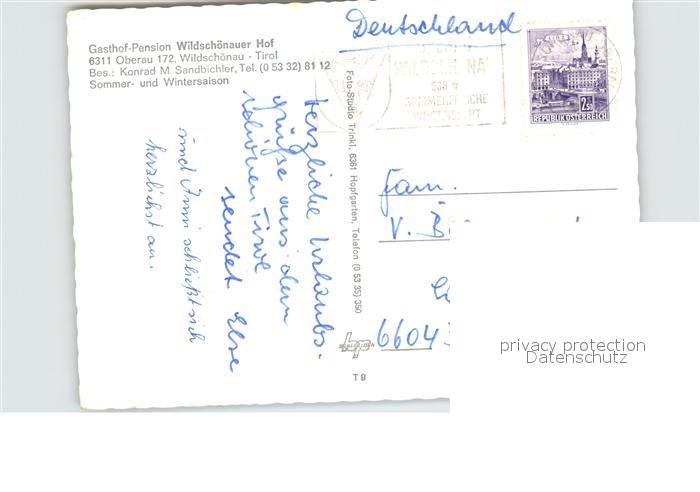 Gasthof-Pension Wildschönauer Hof
6311 Oberau 172, Wildschönau - Tirol
Bes.: Konrad M. Sandbichler, Tel. (0 53 32) 81 12
Sommer- und Wintersaison
Deutschland
938 m
SOMMERFRISCHE
WINTERSPORT
2.50
REPUBLIK ÖSTERREICH
herzliche Urlaubs-
grüße aus dem
schönen Tirol
sendet Else
und Anni schließt sich
herzlichst an.
Foto-Studio Trinkl, 6361 Hopfgarten, Telefon (0 53 35) 350
Fam.
V.
6604
T 9
privacy protection
Datenschutz